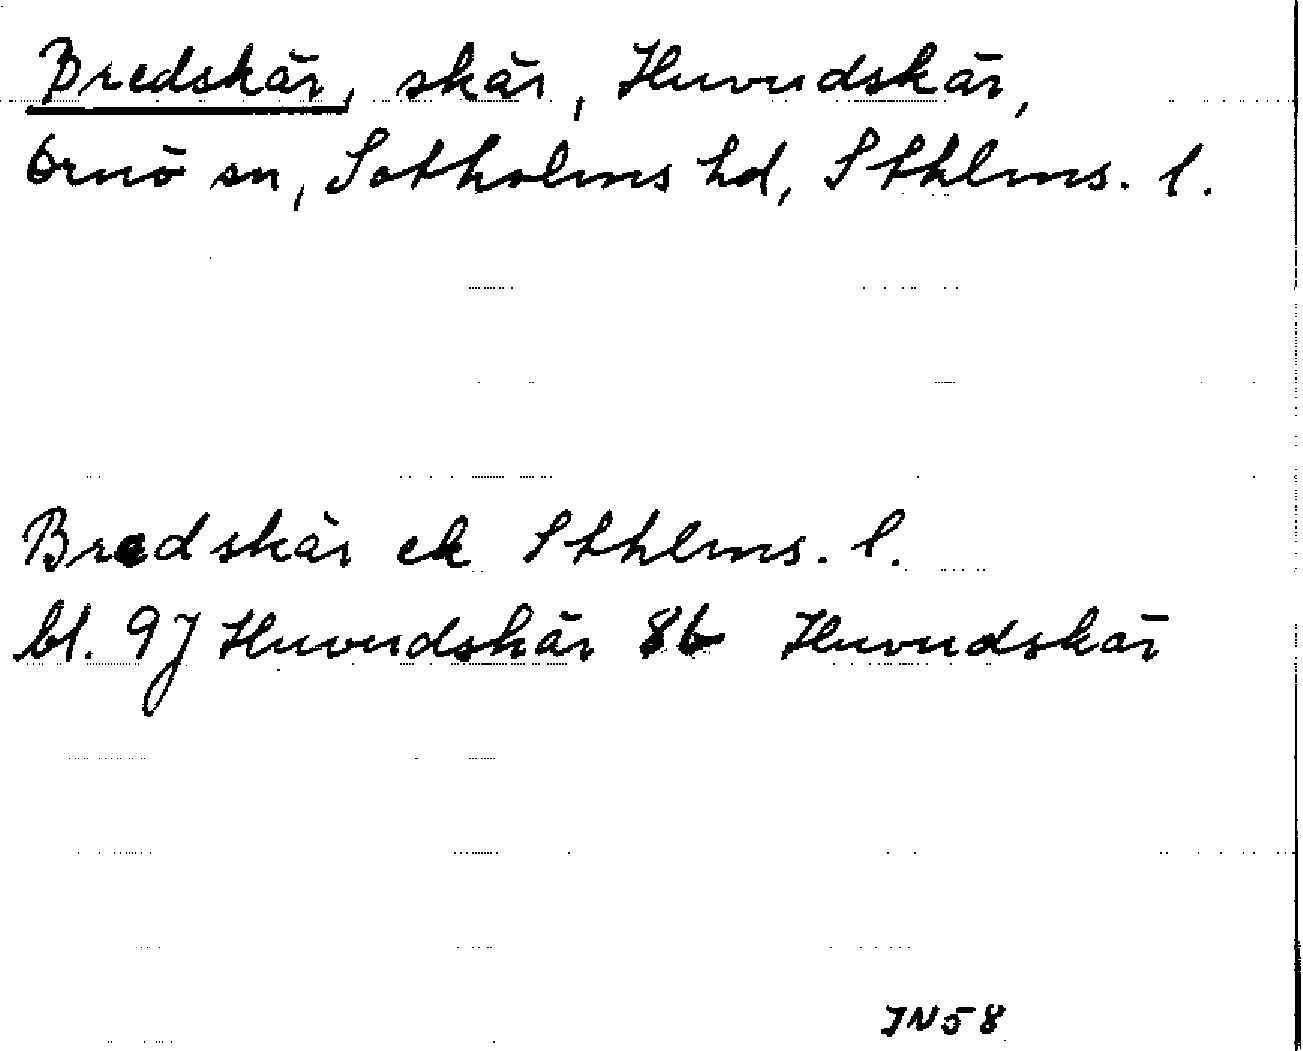 Bredskär, skär, Huvudskär,
Ornö sn, Sotholms hd, Sthlms. l.
Bredskär ek Sthlms. l.
bl. 9J Huvudskär 86 Huvudskär
JN58